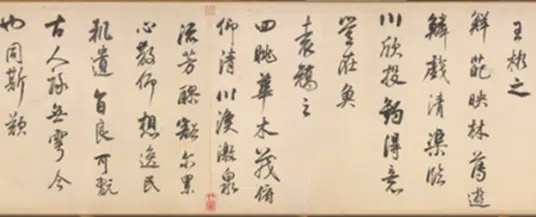 王彬之
鮮葩映林薄遊
鱗戲清渠臨
川欣投釣得意
豈在魚
袁嶠之
四眺華木茂俯
仰清川渙激泉
流芳醪豁爾累
心散仰想逸民
軌遺旨良可翫
古人詠舞雩今
也同斯歎